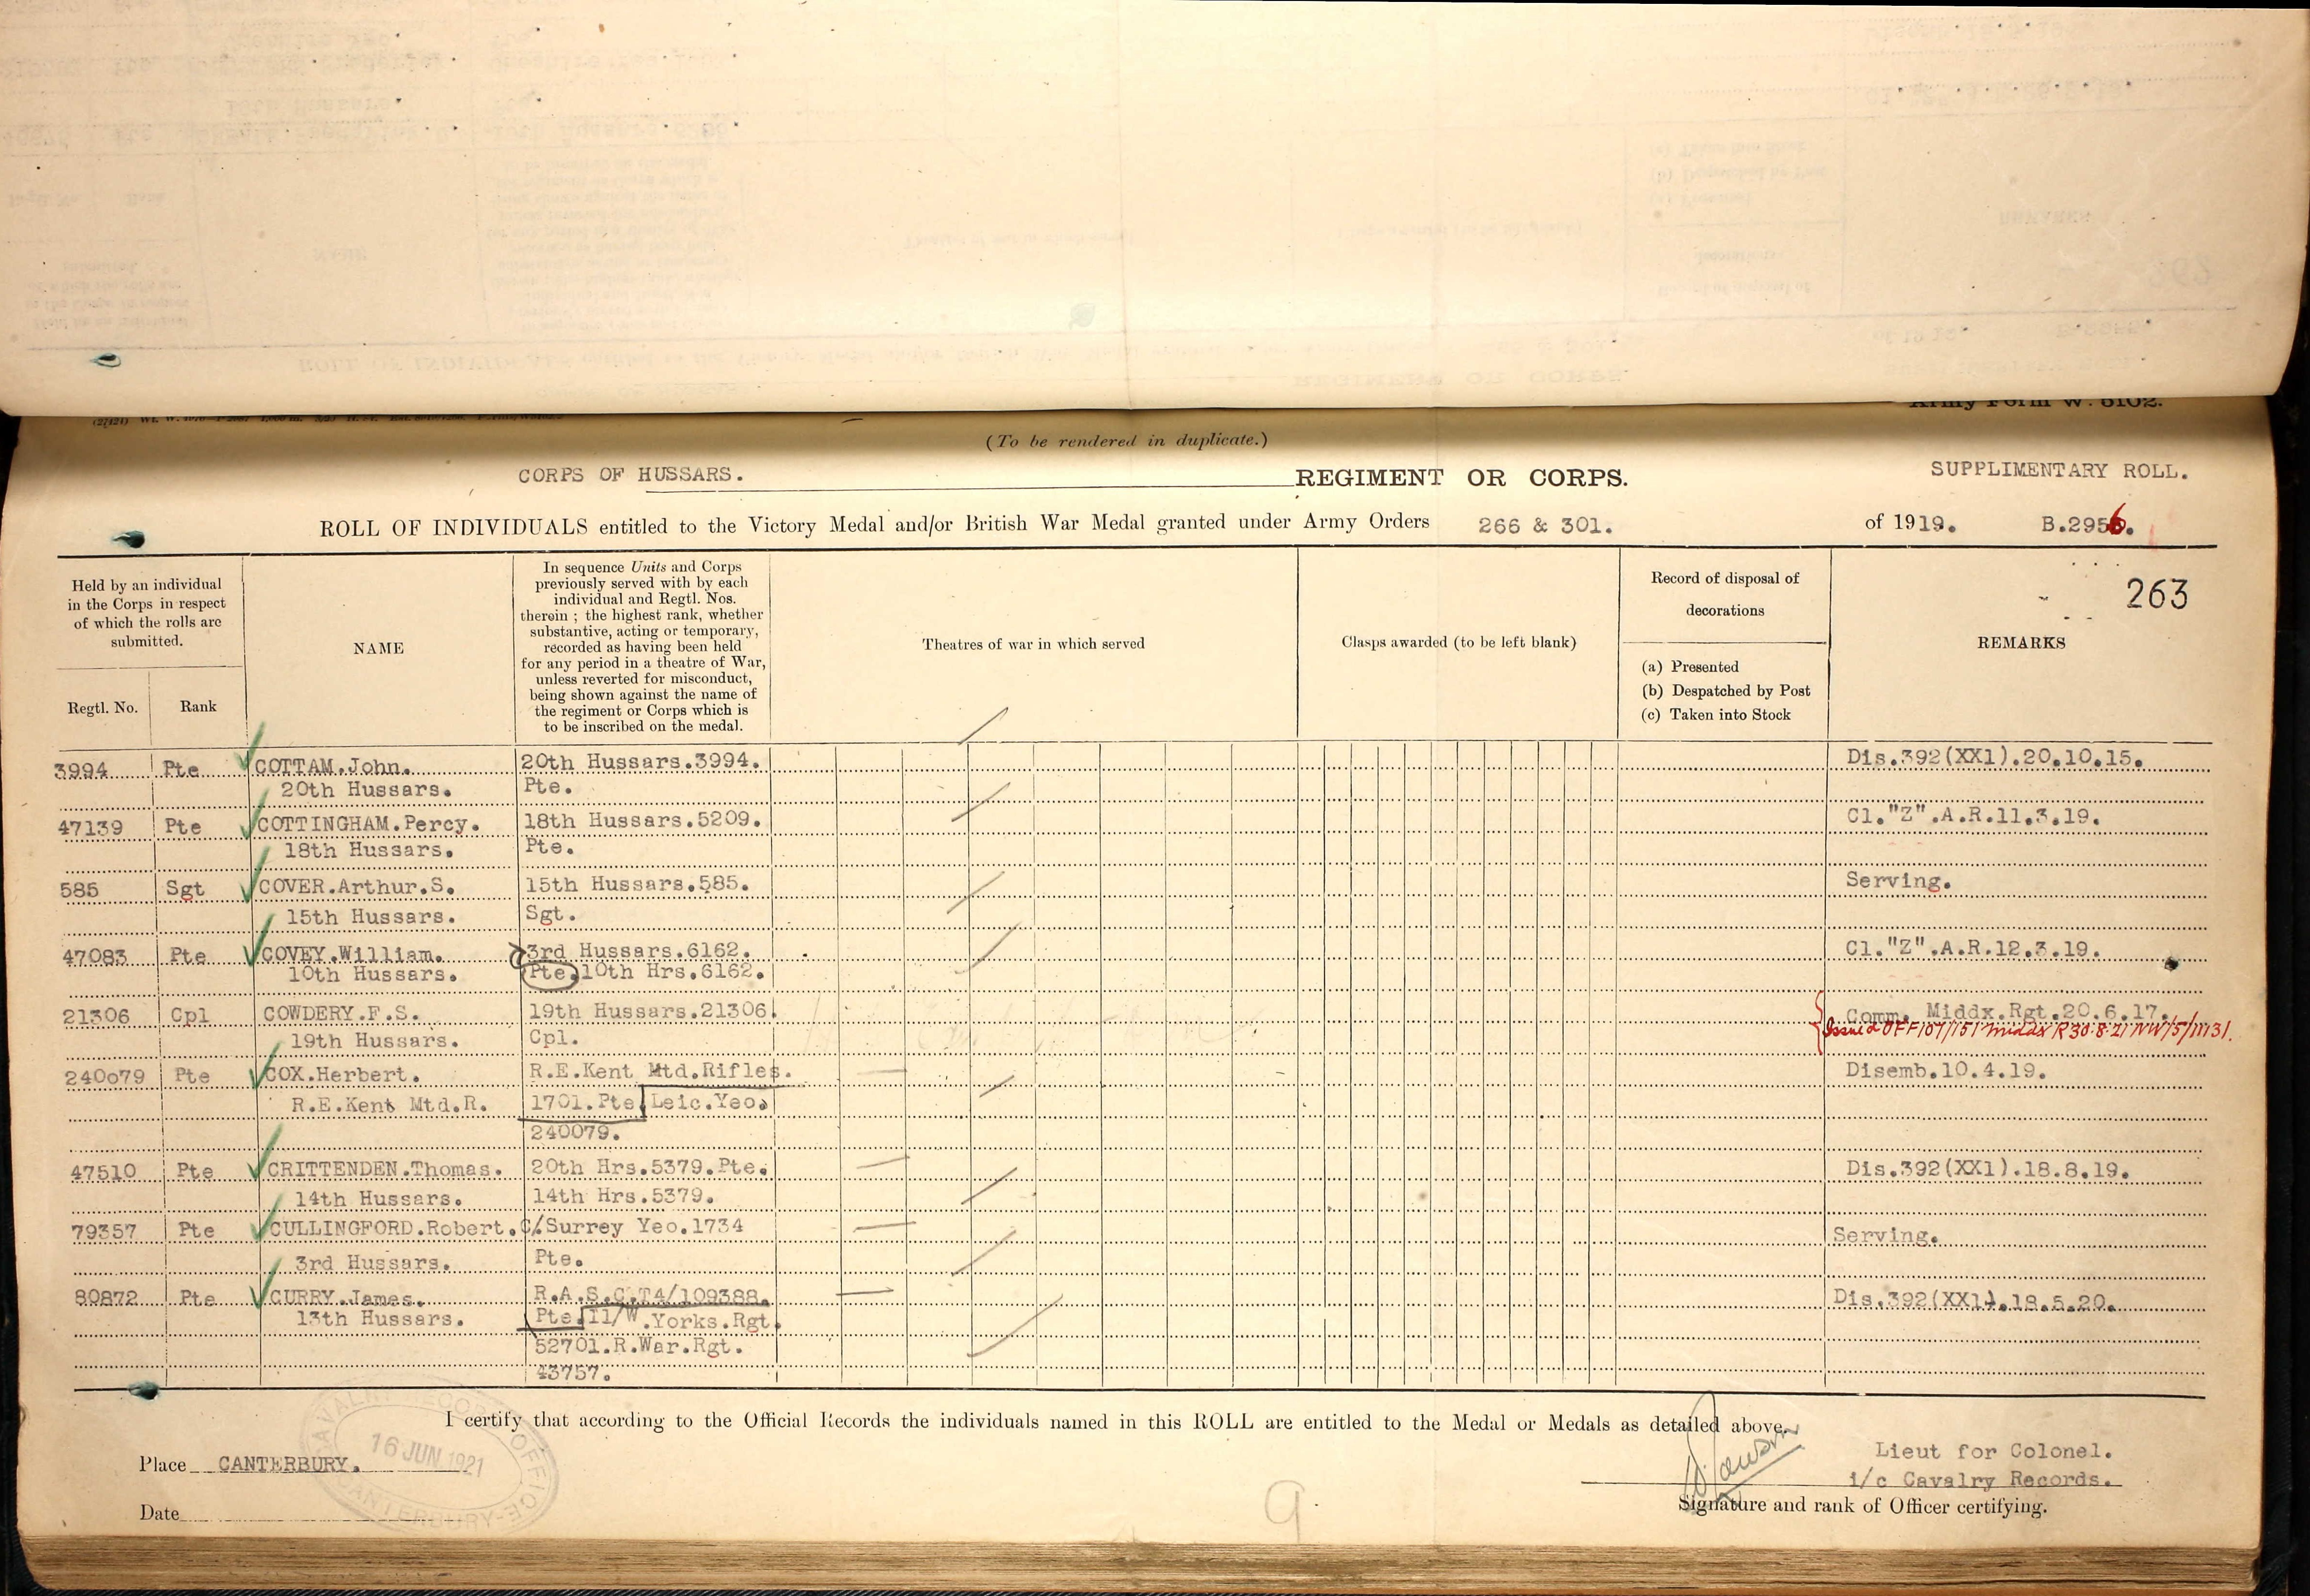 Army Form W. 5102.
(To be rendered in duplicate.)
CORPS OF HUSSARS. REGIMENT OR CORPS. SUPPLIMENTARY ROLL.
ROLL OF INDIVIDUALS entitled to the Victory Medal and/or British War Medal granted under Army Orders 266 & 301. of 1919. B.2956.
263
Held by an individual
in the Corps in respect
of which the rolls are
submitted.
Regtl. No. Rank
NAME
In sequence Units and Corps
previously served with by each
individual and Regtl. Nos.
therein ; the highest rank, whether
substantive, acting or temporary,
recorded as having been held
for any period in a theatre of War,
unless reverted for misconduct,
being shown against the name of
the regiment or Corps which is
to be inscribed on the medal.
Theatres of war in which served
Clasps awarded (to be left blank)
Record of disposal of
decorations
(a) Presented
(b) Despatched by Post
(c) Taken into Stock
REMARKS
3994 Pte COTTAM.John. 20th Hussars.3994. Dis.392(XX1).20.10.15.
20th Hussars. Pte.
47139 Pte COTTINGHAM.Percy. 18th Hussars.5209. Cl."Z".A.R.11.3.19.
18th Hussars. Pte.
585 Sgt COVER.Arthur.S. 15th Hussars.585. Serving.
15th Hussars. Sgt.
47083 Pte COVEY.William. 3rd Hussars.6162. Cl."Z".A.R.12.3.19.
10th Hussars. Pte.10th Hrs.6162.
21306 Cpl COWDERY.F.S. 19th Hussars.21306. Comm. Middx.Rgt.20.6.17.
Issued OFF/107/151 Middx R 30.8.21 NW/5/11131.
19th Hussars. Cpl.
240079 Pte COX.Herbert. R.E.Kent Mtd.Rifles. Disemb.10.4.19.
R.E.Kent Mtd.R. 1701.Pte Leic.Yeo.
240079.
47510 Pte CRITTENDEN.Thomas. 20th Hrs.5379.Pte. Dis.392(XX1).18.8.19.
14th Hussars. 14th Hrs.5379.
79357 Pte CULLINGFORD.Robert.C. Surrey Yeo.1734 Serving.
3rd Hussars. Pte.
80872 Pte CURRY.James. R.A.S.C.T4/109388. Dis.392(XX1).18.5.20.
13th Hussars. Pte.11/W.Yorks.Rgt.
52701.R.War.Rgt.
43757.
I certify that according to the Official Records the individuals named in this ROLL are entitled to the Medal or Medals as detailed above.
CAVALRY RECORD OFFICE
16 JUN 1921
CANTERBURY
Place CANTERBURY.
Lieut for Colonel.
i/c Cavalry Records.
Date
Signature and rank of Officer certifying.
9